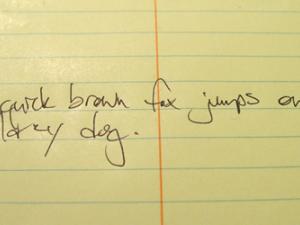 quick brown fox jumps ov
lazy dog.